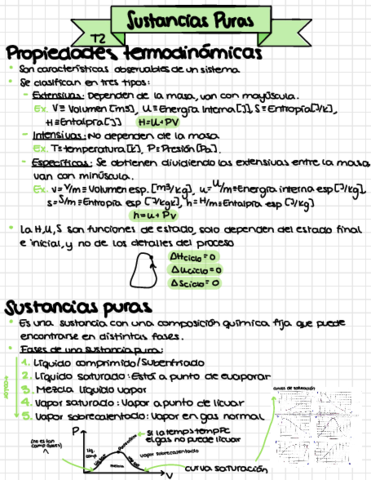 Sustancias Puras
T2
Propiedades termodinámicas
• Son características observables de un sistema.
• Se clasifican en tres tipos:
- Extensivas: Dependen de la masa, van con mayúscula.
Ex. V≡ Volumen [m3], U≡Energía interna [J], S≡Entropía[J/k],
H≡Entalpía[J] H=U+PV
- Intensivas: No dependen de la masa
Ex. T≡temperatura[k], P≡Presión[Pa].
- Específicas: Se obtienen dividiendo las extensivas entre la masa,
van con minúscula.
Ex. v=V/m≡Volumen esp. [m3/kg], u=U/m≡energía interna esp [J/kg]
s=S/m≡Entropía esp [J/kgk], h=H/m≡Entalpía esp [J/kg]
h=u+Pv
• La H,U,S son funciones de estado, solo dependen del estado final
e inicial, y no de los detalles del proceso
ΔHciclo=0
ΔUciclo=0
ΔSciclo=0
Sustancias puras
• Es una sustancia con una composición química fija que puede
encontrarse en distintas fases.
• Fases de una sustancia pura:
1. Líquido comprimido/Subenfriado
2. Líquido saturado: Está a punto de evaporar
3. Mezcla líquido vapor
4. Vapor saturado: Vapor a punto de licuar
5. Vapor sobrecalentado: Vapor en gas normal
P
V
el gas no puede licuar
vapor sobrecalentado
curva saturación